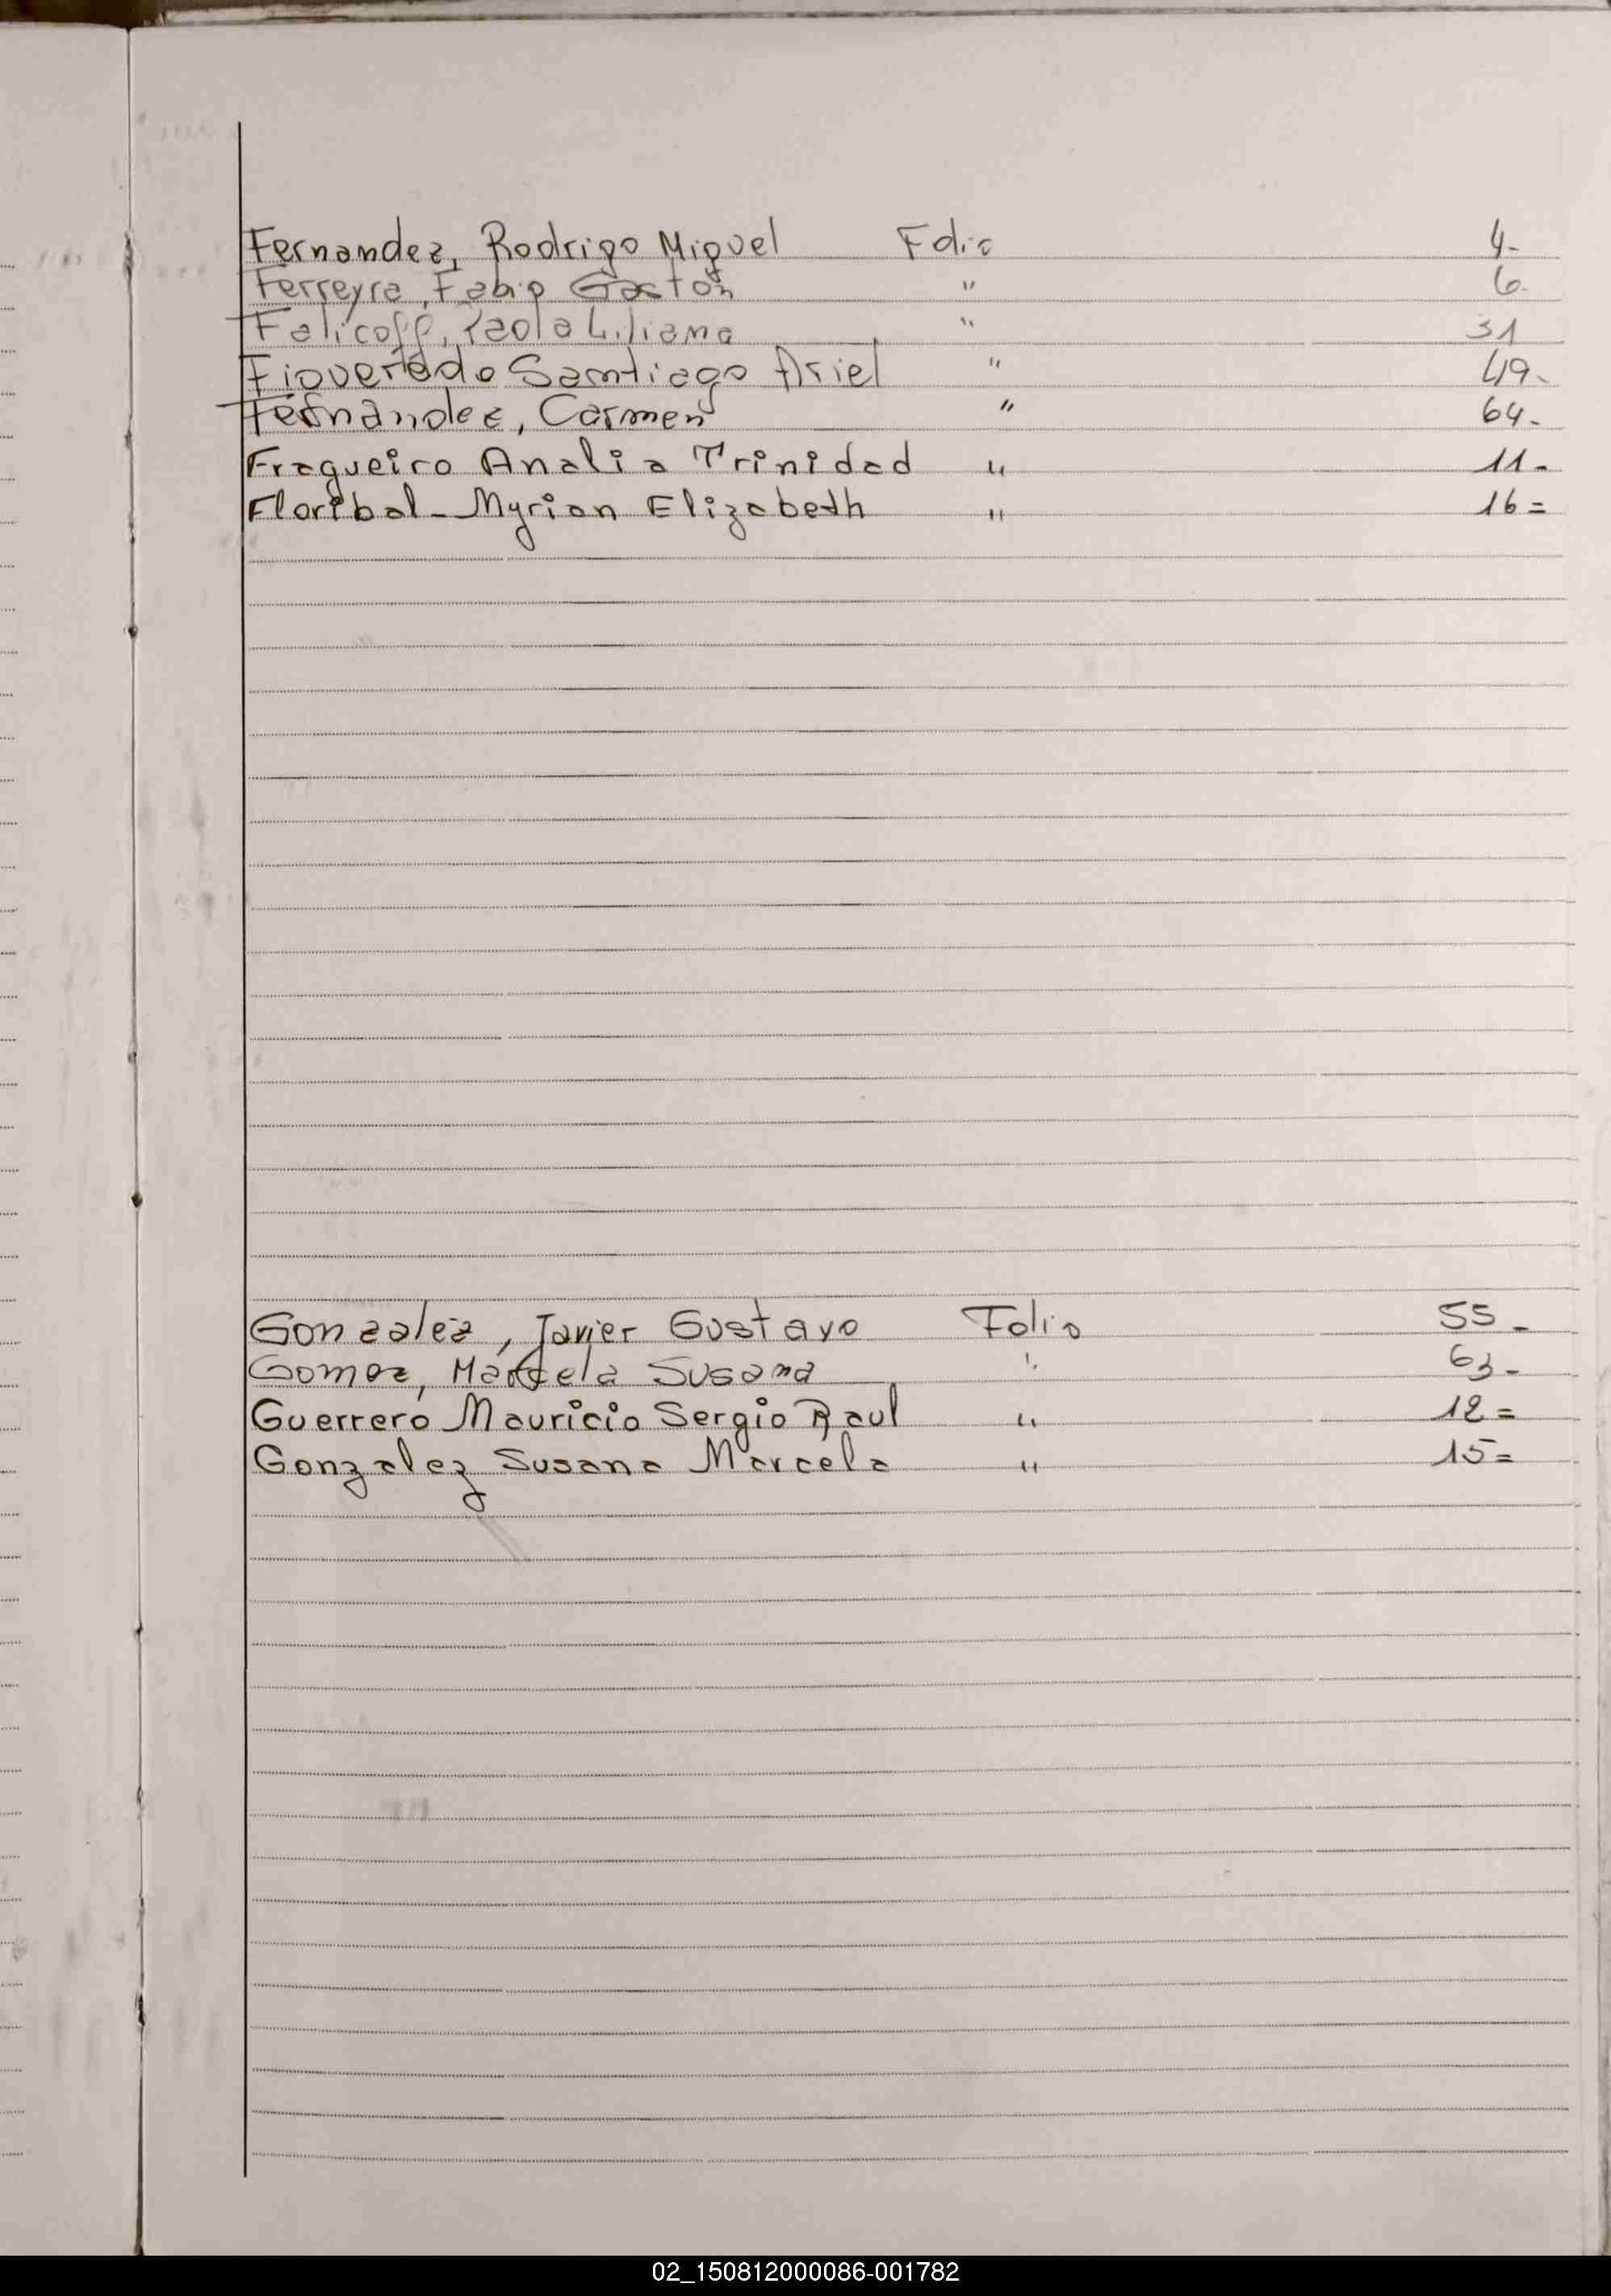 Fernandez, Rodrigo Miguel Folio 4-
Ferreyra, Fabio Gaston " 6-
Falicoff, Paola Liliana " 31
Figueredo Santiago Ariel " 49-
Fernández, Carmen " 64-
Fragueiro Analia Trinidad " 11-
Floribal - Myrian Elizabeth " 16=
Gonzalez, Javier Gustavo Folio 55-
Gomez, Marcela Susana " 63-
Guerrero Mauricio Sergio Raul " 12=
Gonzalez Susana Marcela " 15=
02_150812000086-001782